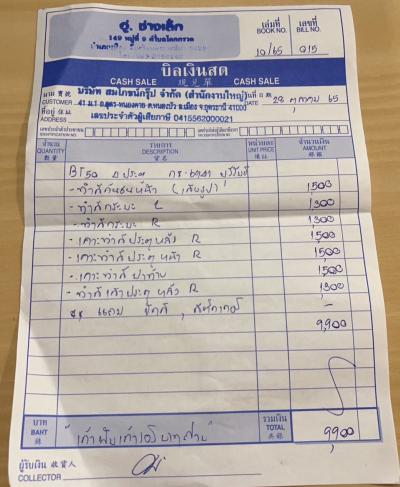 อู่ ช่างเล็ก
149 หมู่ที่ 9 ตำบลโคกกรวด
เล่มที่ เลขที่
BOOK NO. BILL NO.
10/65 015
บิลเงินสด
CASH SALE 現兑單 CASH SALE
นาม บริษัท สมโภชน์กรุ๊ป จำกัด (สำนักงานใหญ่) วันที่
CUSTOMER 41 ม.1 ถ.อุดร-หนองคาย ต.หมากแข้ง อ.เมือง จ.อุดรธานี 41000 DATE 28 ตุลาคม 65
ที่อยู่
ADDRESS เลขประจำตัวผู้เสียภาษี 0415562000021
จำนวน รายการ หน่วยละ จำนวนเงิน
QUANTITY DESCRIPTION UNIT PRICE AMOUNT
數量 貨名
BT50 บุรีรัมย์
- ทำสีกันชนหน้า 1,500
- ทำสีกระบะ L 1,300
- ทำสีกระบะ R 1,300
- เคาะทำสีประตูหลัง R 1,500
- เคาะทำสีประตูหน้า R 1,500
- เคาะทำสีฝาท้าย 1,500
- ทำสีเสาประตูหลัง R 1,300
แถม ขัดสี, -
9,900
บาท รวมเงิน
BAHT TOTAL
"เก้าพันเก้าร้อยบาทถ้วน" 9,900
ผู้รับเงิน 收貨人
COLLECTOR